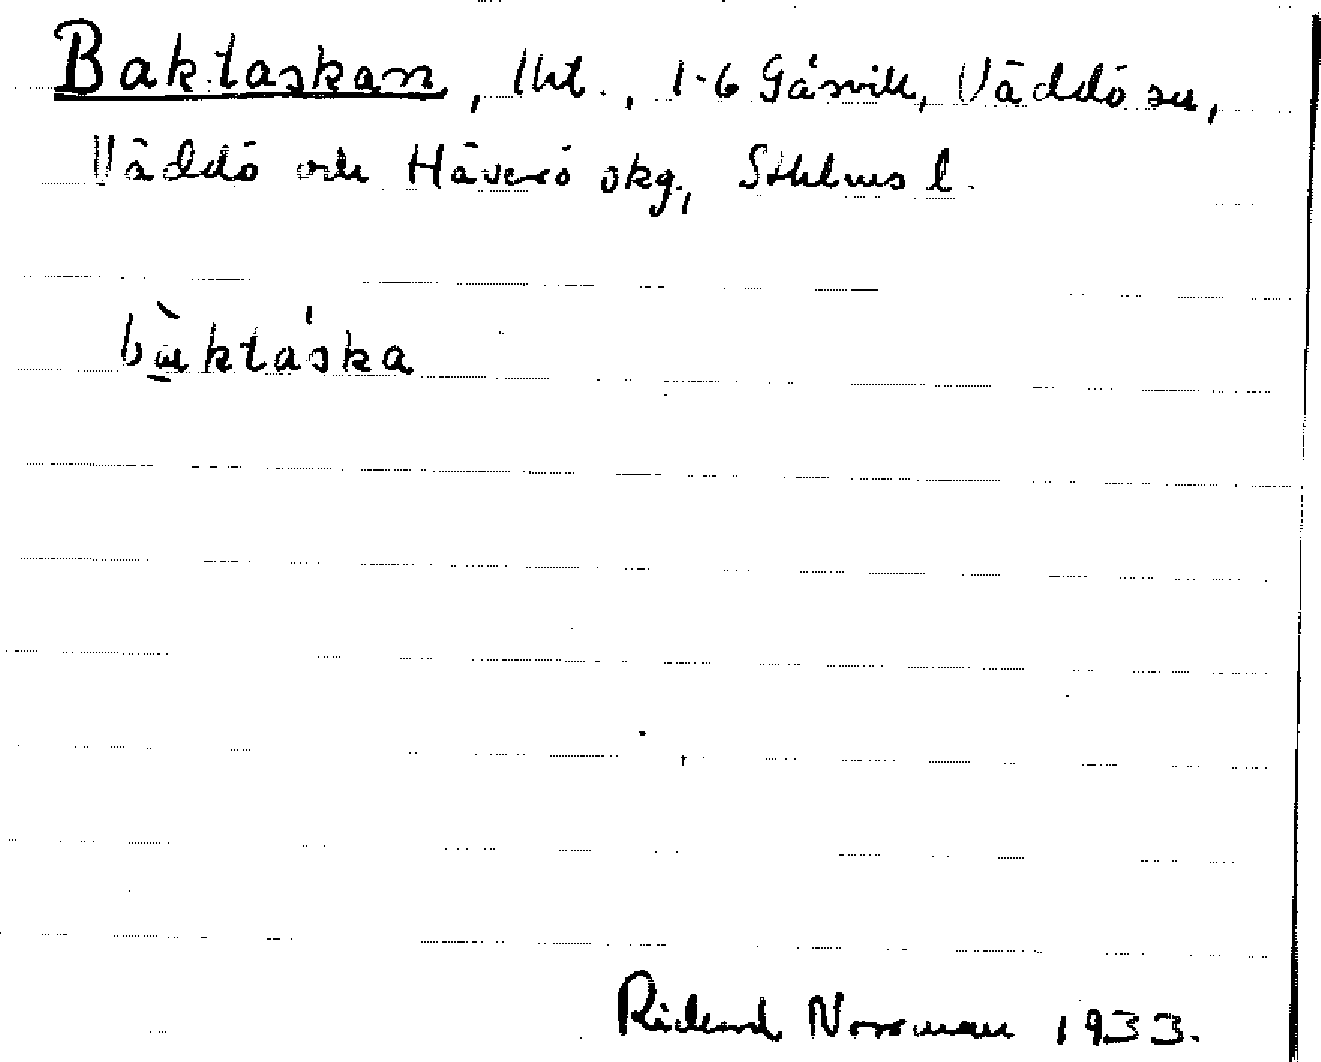 Baktaskan, lht., 1-6 Gåsvik, Väddö sn,
Väddö och Häverö skg, Sthlms l.
bàktáska
Rickard Norrman 1933.